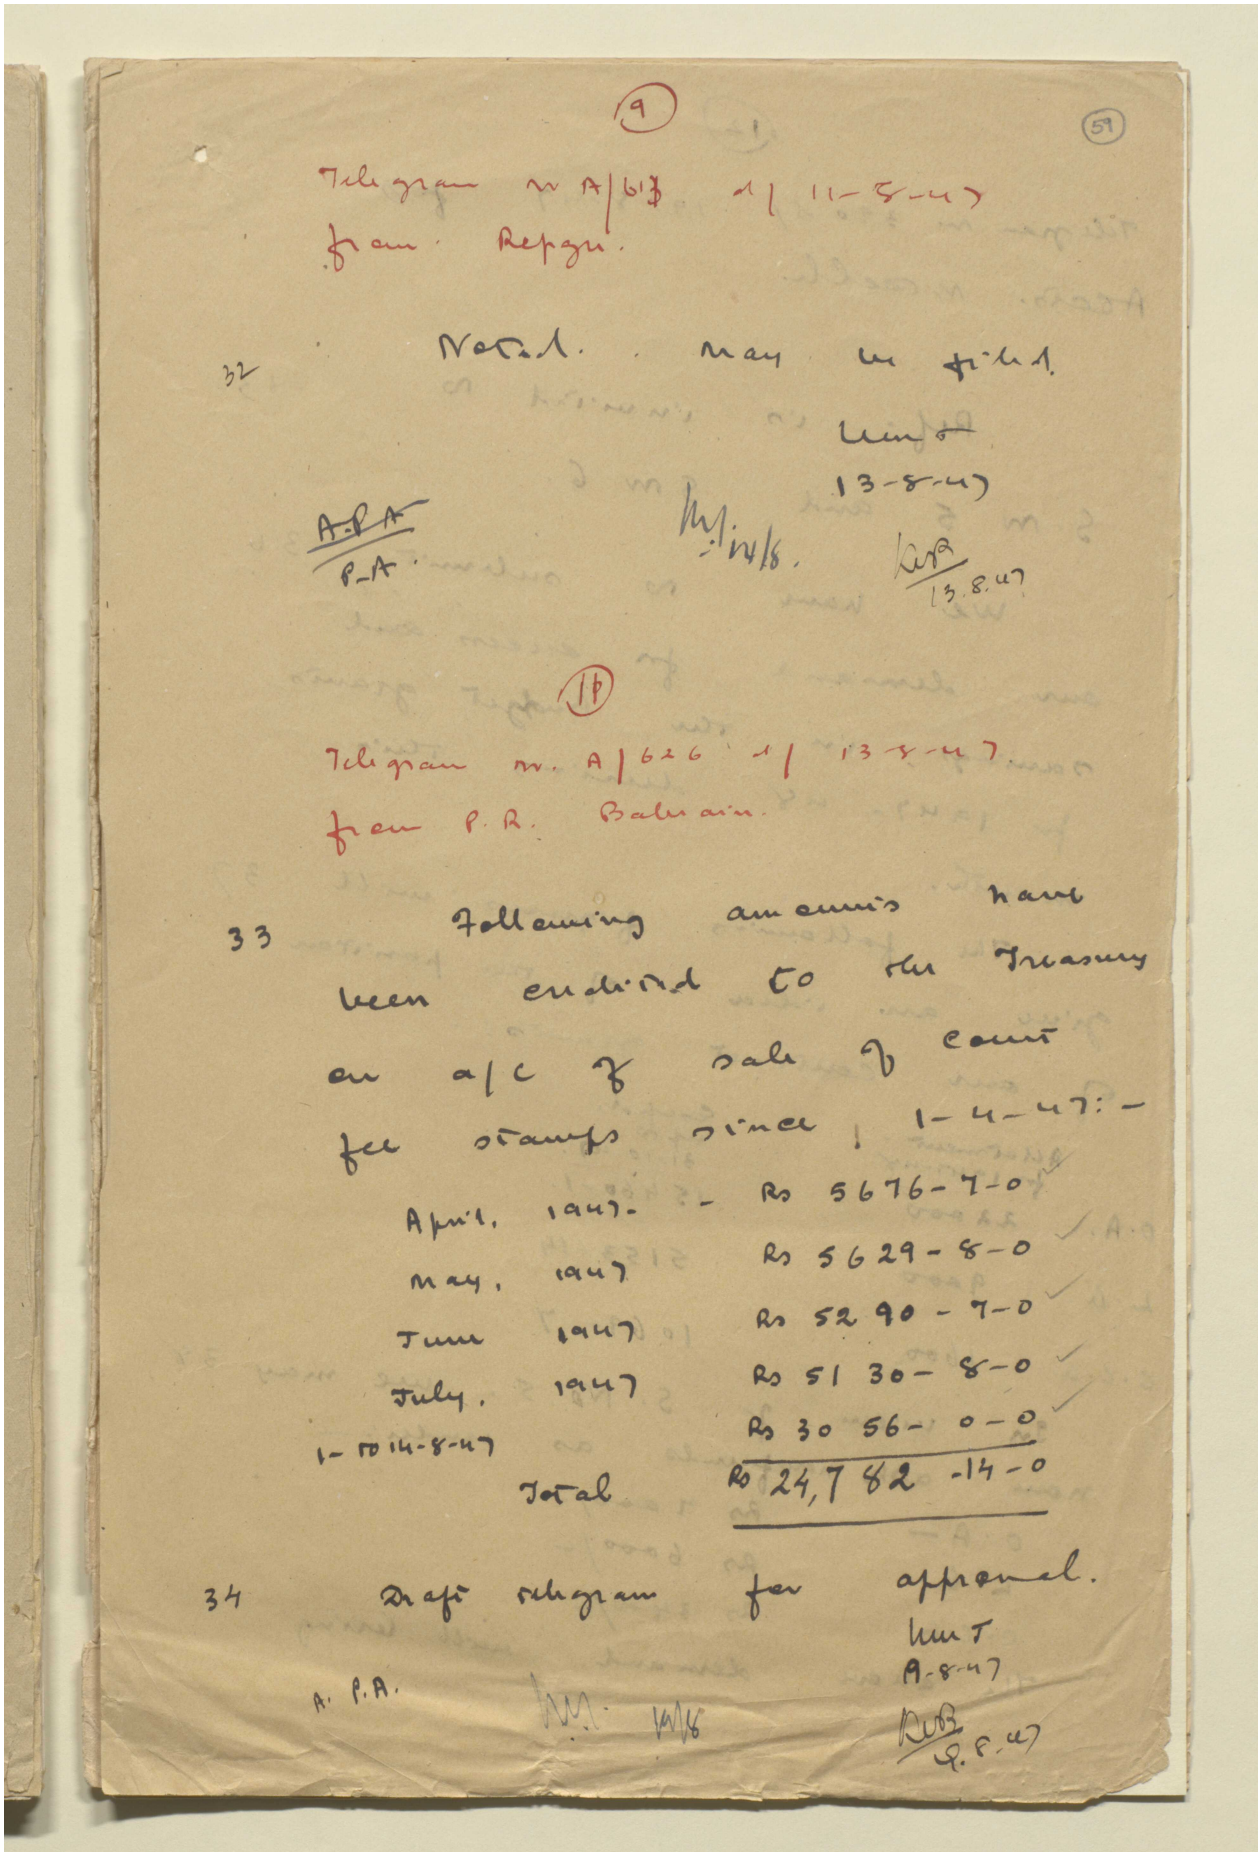 9
59
Telegram No A/613 d/ 11-8-47
from. Repgu.
32
Noted. May be filed.
13-8-47
A.P.A
P.A.
14/8.
13.8.47
Telegram No. A/626 d/ 13-8-47
from P.R. Bahrain.
33 Following amounts have
been credited to the Treasury
on a/c of sale of court
fee stamps since 1-4-47:-
April, 1947. - Rs 5676-7-0
May, 1947 Rs 5629-8-0
June 1947 Rs 5290-7-0
July, 1947 Rs 5130-8-0
1- to 14-8-47 Rs 3056-0-0
Total Rs 24,782-14-0
34 Draft telegram for approval.
A. P.A.
19/8